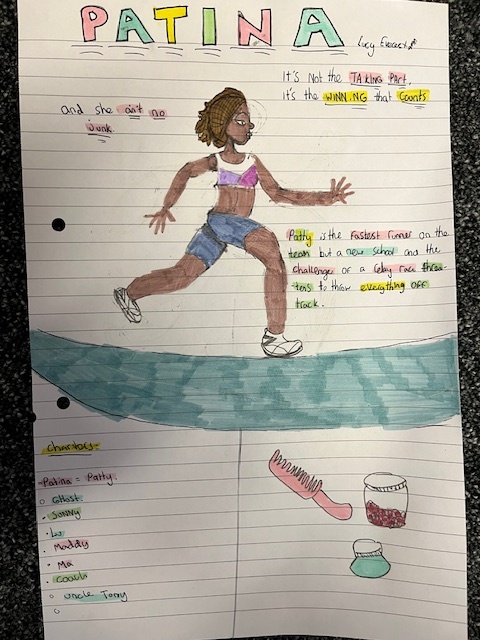 PATINA
Lucy
It's Not the TAKING PART.
It's the WINNING that Counts
and she ain't no
junk.
Patty is the Fastest runner on the
team but a new school and the
challenge of a relay race threa-
tens to throw everything off
track.
charters:-
-Patina = Patty.
Ghost
Sonny
Lu
Maddy
Ma
Coach
uncle Tony